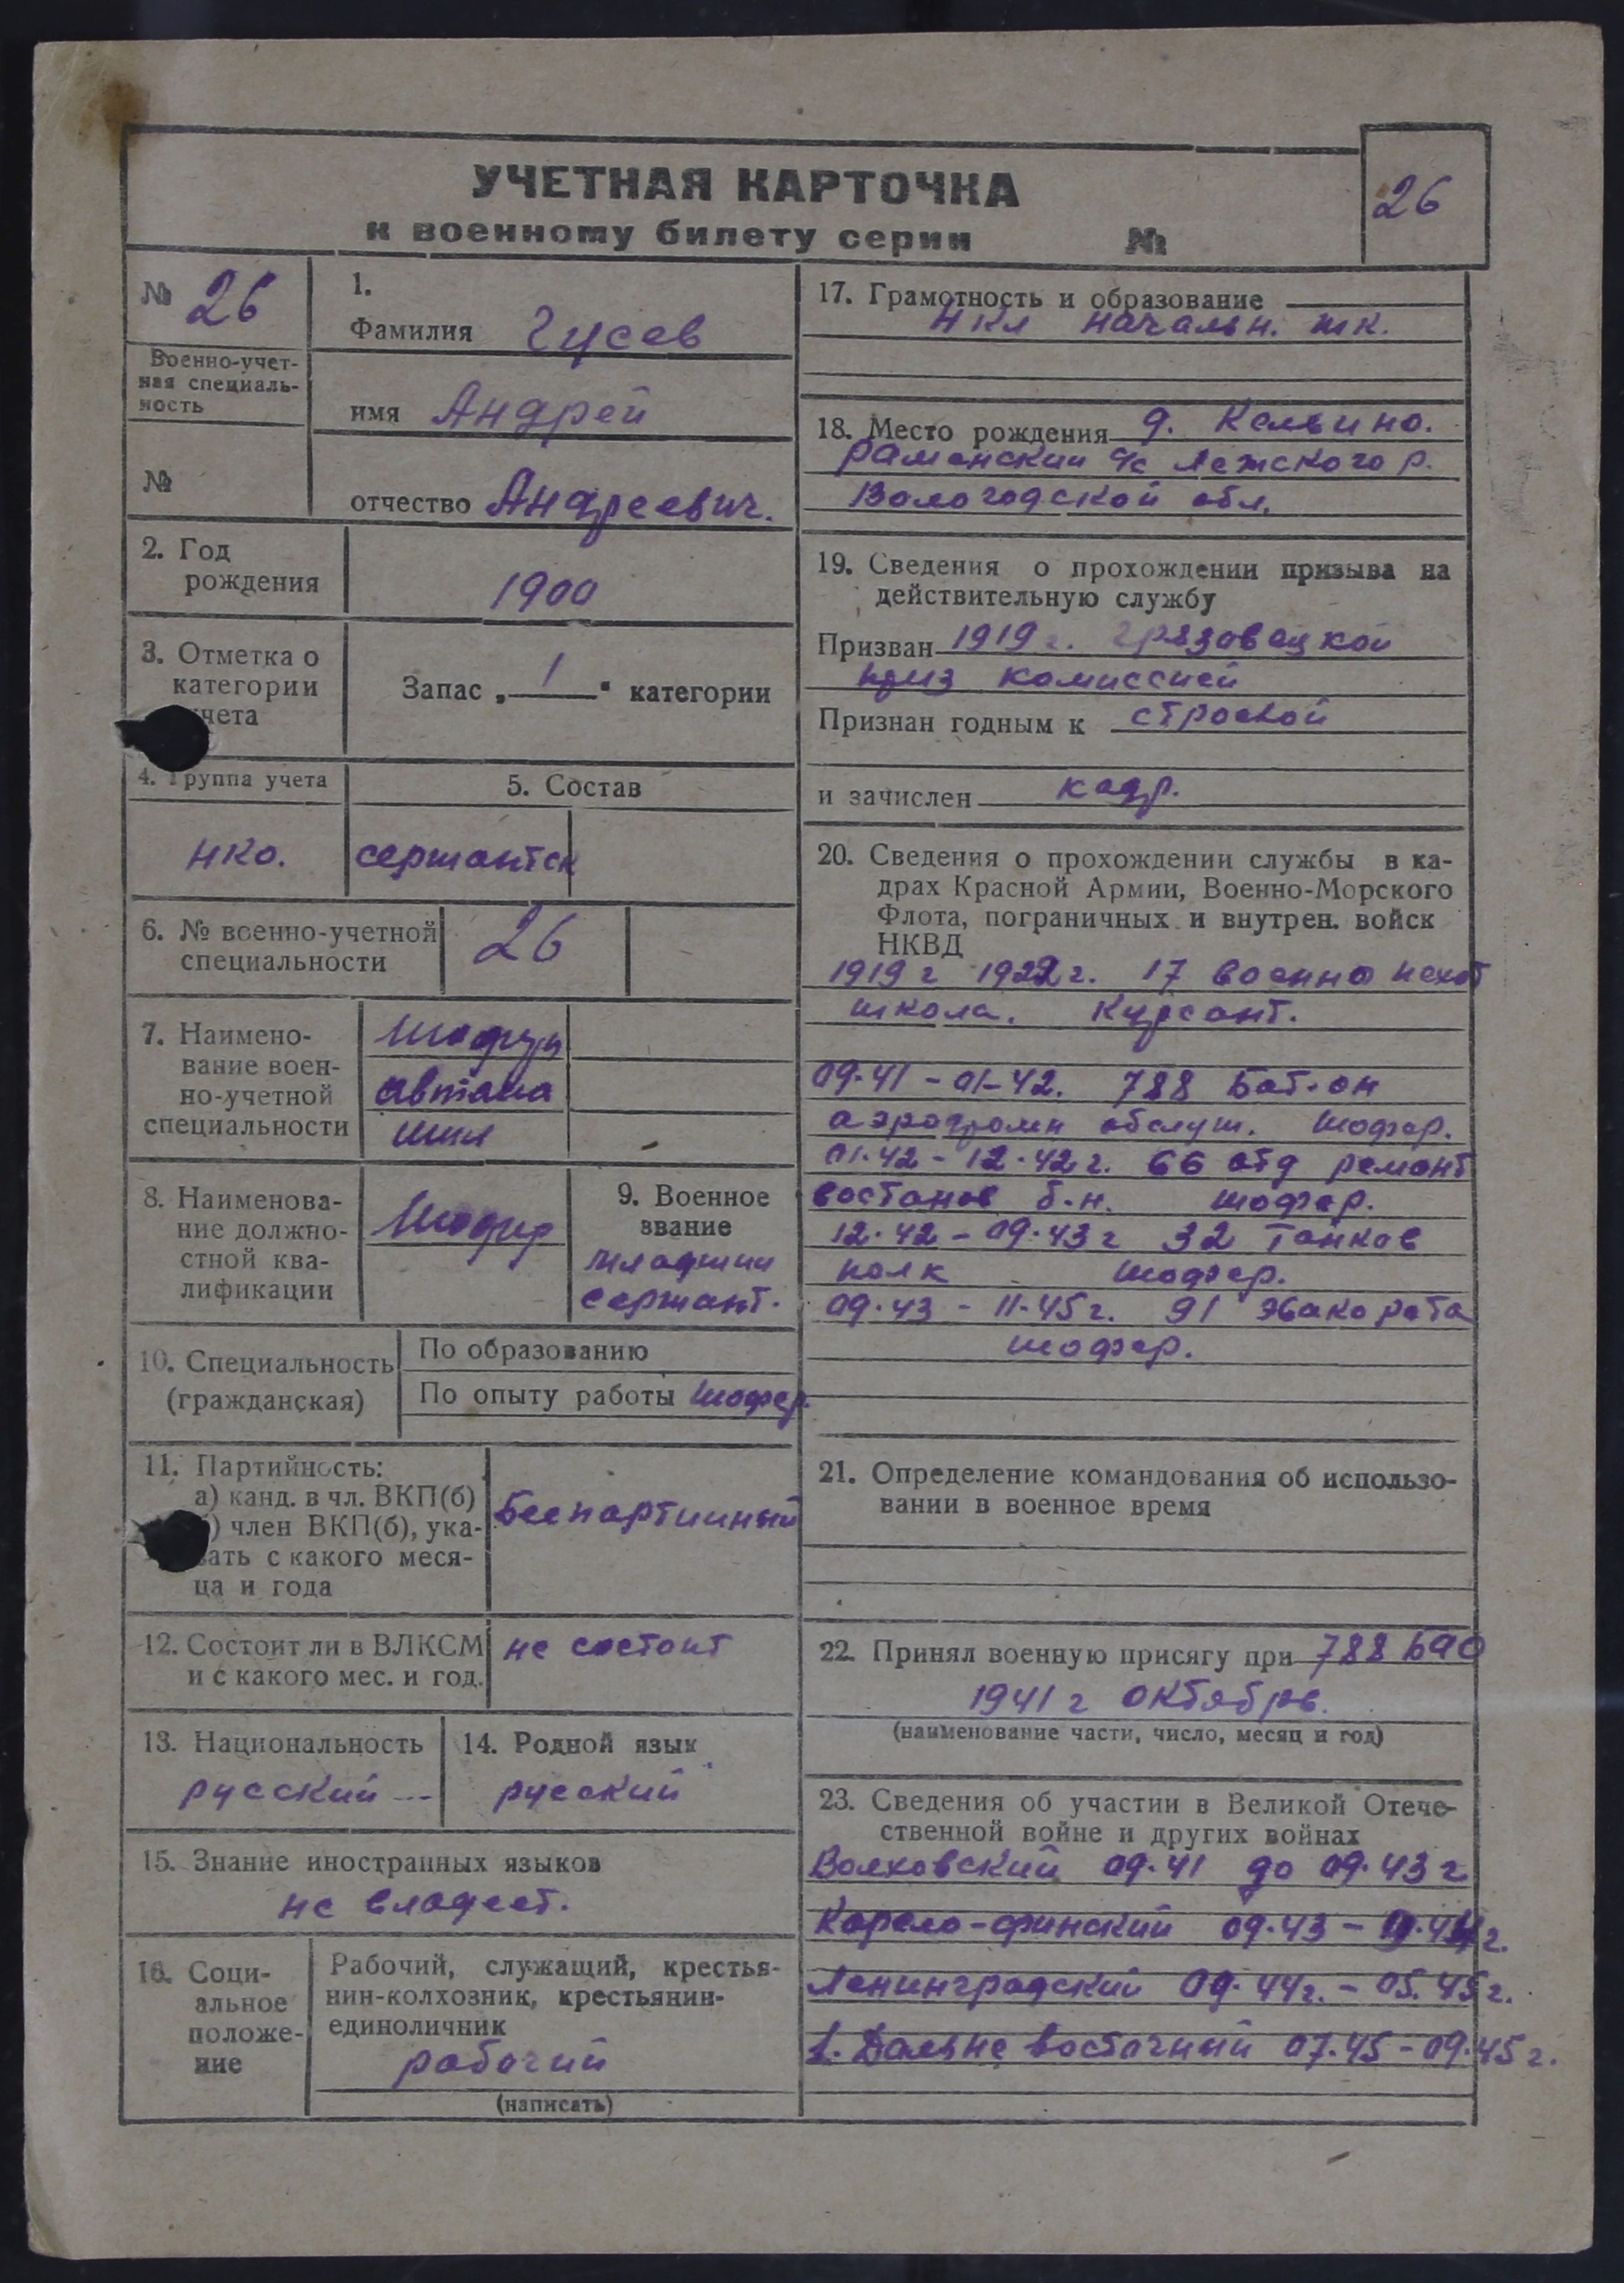 УЧЕТНАЯ КАРТОЧКА
к военному билету серии №
26
№ 26
Военно-учет-
ная специаль-
ность
№
1.
Фамилия Гусев
имя Андрей
отчество Андреевич.
2. Год
рождения
1900
3. Отметка о
категории
учета
Запас „ 1 " категории
4. Группа учета
нко.
5. Состав
сержантск
6. № военно-учетной
специальности
26
7. Наимено-
вание воен-
но-учетной
специальности
Шофер
автома
шин
8. Наименова-
ние должно-
стной ква-
лификации
Шофер
9. Военное
звание
младшии
сержант.
10. Специальность
(гражданская)
По образованию
По опыту работы шофер.
11. Партийность:
а) канд. в чл. ВКП(б)
б) член ВКП(б), ука-
зать с какого меся-
ца и года
Беспартиинный
12. Состоит ли в ВЛКСМ
и с какого мес. и год.
не состоит
13. Национальность
русский
14. Родной язык
русский
15. Знание иностранных языков
не владеет.
16. Соци-
альное
положе-
ние
Рабочий, служащий, крестья-
нин-колхозник, крестьянин-
единоличник
рабочий
(написать)
17. Грамотность и образование
4 кл начальн. шк.
18. Место рождения д.
Раменский с/с Лежского р.
Вологодской обл.
19. Сведения о прохождении призыва на
действительную службу
Призван 1919 г. Грязовецкой
приз комиссией
Признан годным к строевой
и зачислен кадр.
20. Сведения о прохождении службы в ка-
драх Красной Армии, Военно-Морского
Флота, пограничных и внутрен. войск
НКВД
1919 г 1922 г. 17 военно пехот
школа. Курсант.
09.41 - 01-42. 788 Бат-он
аэродромн обслуж. шофер.
01.42 - 12.42 г. 66 отд ремонт
востанов б-н. шофер.
12.42 - 09.43 г 32 Танков
полк шофер.
09.43 - 11.45 г. 91 эвако рота
шофер.
21. Определение командования об использо-
вании в военное время
22. Принял военную присягу при 788 БАО
1941 г октябрь.
(наименование части, число, месяц и год)
23. Сведения об участии в Великой Отече-
ственной войне и других войнах
Волховский 09.41 до 09.43 г
Карело-финский 09.43 -
Ленинградский 09.44 г. - 05.45 г.
1. Дальне восточный 07.45 - 09.45 г.